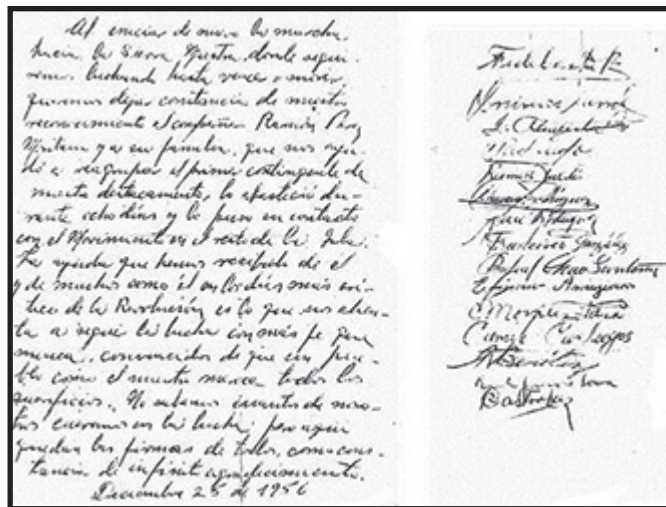 Al iniciar de nuevo la marcha
hacia la Sierra Maestra, donde segui-
remos luchando hasta vencer o morir,
queremos dejar constancia de nuestro
reconocimiento al compañero Ramón Pérez
Montano y a su familia, que nos ayu-
dó a reagrupar el primer contingente de
nuestro destacamento, lo abasteció du-
rante ocho días y lo puso en contacto
con el Movimiento en el resto de la Isla.
La ayuda que hemos recibido de él
y de muchos como él en los días más crí-
ticos de la Revolución es lo que nos alien-
ta a seguir la lucha con más fe que
nunca, convencidos de que un pue-
blo como el nuestro merece todos los
sacrificios. No sabemos cuantos de noso-
tros caeremos en la lucha, pero aquí
quedan las firmas de todos, como cons-
tancia de infinito agradecimiento.
Diciembre 25 de 1956
Fidel Castro R
J. Almeida
Francisco González
Rafael Chao Santana
Efigenio Ameijeiras
C Morfa
Camilo Cienfuegos
R Castro Ruz